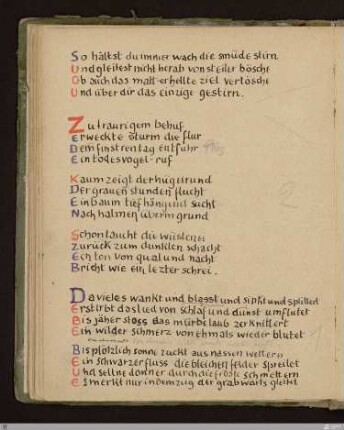 So hältst du immer wach die müde stirn
Und gleitest nicht herab von steiler bösche
Ob auch das matt erhellte ziel verlösche
Und über dir das einzige gestirn.
Zu traurigem behuf
Erweckte sturm die flur
Dem finstren tag entfuhr
Ein todesvogel-ruf
Kaum zeigt der hügel rund
Der grauen stunden flucht
Ein baum tief hängend sucht
Nach halmen überm grund
Schon taucht die
Zurück zum dunklen schacht
Ein ton von qual und nacht
Bricht wie ein lezter schrei.
Da vieles wankt und blasst und sinkt und splittert
Erstirbt das lied von schlaf und dunst umflutet
Bis jäher stoss das mürbe laub zerknittert
Ein wilder schmerz von ehmals wieder blutet
Bis plötzlich sonne zuckt aus nassen wettern
Ein schwarzer fluss die bleichen felder spreitet
Und seltne donner durch die fröste schmettern
Er merkt nur in dem zug der grabwärts gleitet